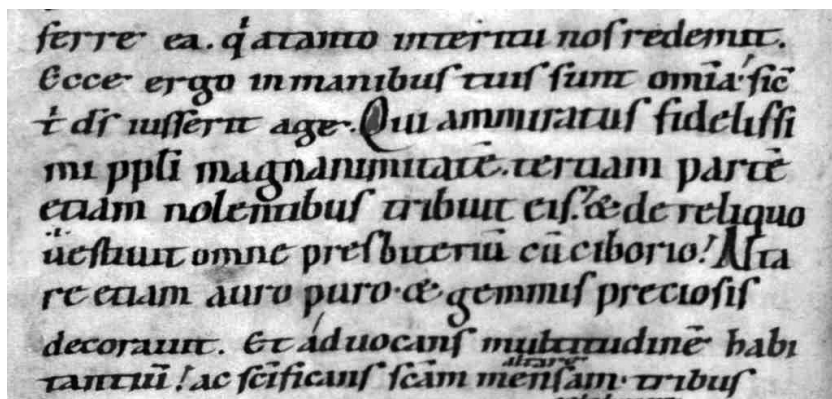 ferre ea. qͥ atanto interitu nos redemit.
Ecce ergo inmanibus tuis sunt om̄ia. sic̄
t d̄s iusserit age. Qui ammiratus fidelissi
mi pp̄li magnanimitatē. tertiam partē
etiam nolentibus tribuit eis. & de reliquo
uestiuit omne presbiteriū cū ciborio. Alta
re etiam auro puro. & gemmis preciosis
decorauit. Et aduocans multitudinē habi
tantiū! ac sc̄ificans sc̄am altare mensam. tribus